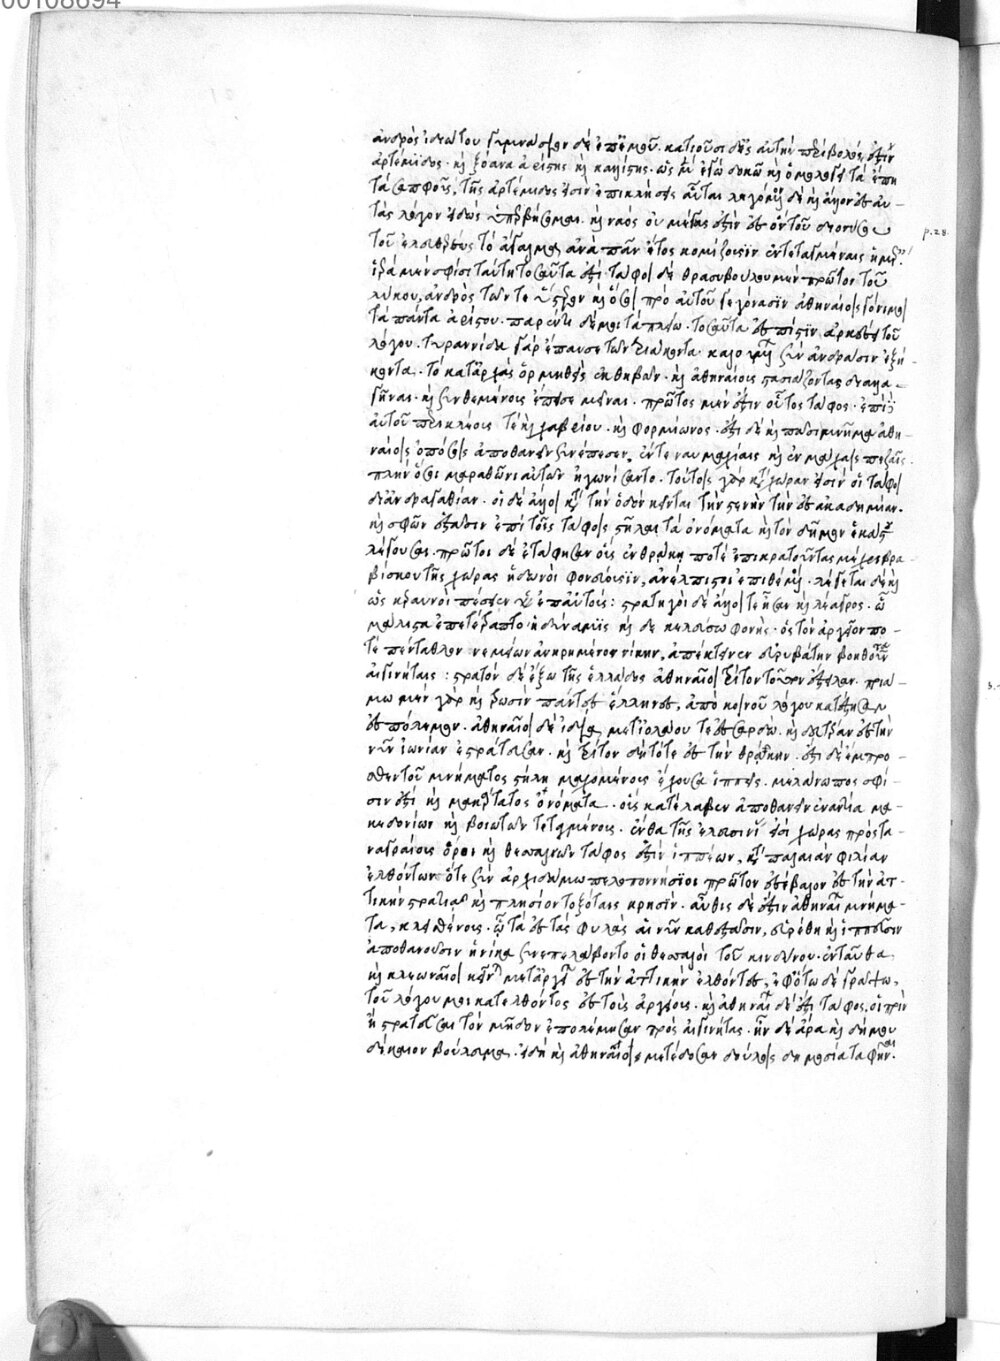 00108694
ἀνδρὸς ἰδιώτου γυμνάσιον δὲ ἐπ' ἐμοῦ. κατιοῦσι δὲ ἐς αὐτὴν περίβολός ἐστιν
ἀρτέμιδος. καὶ ξόανα ἀρίστης καὶ καλλίστης. ὡς μὲν ἐγὼ δοκῶ καὶ ὁμολογεῖ τὰ ἔπη
τὰ σαπφοῦς, τῆς ἀρτέμιδός εἰσιν ἐπικλήσεις αὗται λεγόμενον δὲ καὶ ἄλλον ἐς αὐ-
τὰς λόγον εἰδὼς ὑπερβήσομαι. καὶ ναὸς οὐ μέγας ἐστὶν ἐς ὃν τοῦ διονύσου
p. 28.
τοῦ ἐλευθερέως τὸ ἄγαλμα ἀνὰ πᾶν ἔτος κομίζουσιν ἐν τεταγμέναις ἡμέραις
ἱερὰ μέν σφισι ταύτῃ τοσαῦτά ἐστι. τάφοι δὲ θρασυβούλου μὲν πρῶτον τοῦ
λύκου, ἀνδρὸς τῶν τε ὕστερον καὶ ὅσοι πρὸ αὐτοῦ γεγόνασιν ἀθηναίοις λόγιμοι
τὰ πάντα ἀρίστου. παρέντι δέ μοι τὰ πλείω. τοσαῦτα ἐς πίστιν ἀρκέσει τοῦ
λόγου. τυραννίδα γὰρ ἔπαυσε τῶν τριάκοντα καλουμένων σὺν ἀνδράσιν ἑξή-
κοντα. τὸ κατ' ἀρχὰς ὁρμηθεὶς ἐκ θηβῶν. καὶ ἀθηναίοις στασιάζοντας διαλλα-
γῆναι. καὶ συνθεμένοις ἔπεισε μεῖναι. πρῶτος μέν ἐστιν οὗτος τάφος. ἐπὶ δὲ
αὐτοῦ περικλέους τε καὶ χαβρίου. καὶ φορμίωνος. ἔστι δὲ καὶ πᾶσι μνῆμα ἀθη-
ναίοις ὁπόσοις ἀποθανεῖν συνέπεσεν, ἔν τε ναυμαχίαις καὶ ἐν μάχαις πεζαῖς.
πλὴν ὅσοι μαραθῶνι αὐτῶν ἠγωνίσαντο. τούτοις γὰρ κατὰ χώραν εἰσὶν οἱ τάφοι
δι' ἀνδραγαθίαν. οἱ δὲ ἄλλοι κατὰ τὴν ὁδὸν κεῖνται τὴν στενὴν τὴν ἐς ἀκαδημίαν.
καὶ σφῶν ἑστᾶσιν ἐπὶ τοῖς τάφοις στῆλαι τὰ ὀνόματα καὶ τὸν δῆμον ἑκάστου
λέγουσαι. πρῶτοι δὲ ἐτάφησαν οὓς ἐν θρᾴκῃ ποτὲ ἐπικρατοῦντας μέχρι δρα-
βίσκου τῆς χώρας ἠδωνοὶ φονεύουσιν, ἀνέλπιστοι ἐπιθέμενοι. λέγεται δὲ καὶ
ὡς κεραυνοὶ πέσοιεν ἐπ' αὐτούς: στρατηγοὶ δὲ ἄλλοι τε ἦσαν καὶ λέαδρος. ᾧ
μάλιστα ἐπετέτραπτο ἡ δύναμις καὶ δεκελεεὺς σωφάνης. ὃς τὸν ἀργεῖόν πο-
τε πένταθλον νεμείων ἀνῃρημένον νίκην, ἀπέκτεινεν εὐρυβάτην βοηθοῦντα
αἰγινήταις: στρατὸν δὲ ἔξω τῆς ἑλλάδος ἀθηναῖοι τρίτον τοῦτον ἔστειλαν. πριά-
μῳ μὲν γὰρ καὶ τρωσὶν πάντες ἕλληνες, ἀπὸ κοινοῦ λόγου κατέστησαν
ἐς πόλεμον. ἀθηναῖοι δὲ ἰδίᾳ μετ' ἰολάου τε ἐς σαρδώ. καὶ δευτέραν ἐς τὴν
νῦν ἰωνίαν ἐστράτευσαν. καὶ τρίτον δὴ τότε ἐς τὴν θρᾴκην. ἔστι δὲ ἔμπρο-
σθεν τοῦ μνήματος στήλη μαχομένους ἔχουσα ἱππεῖς. μελάνωπός σφί-
σιν ἐστι καὶ μακάρτατος ὀνόματα. οὓς κατέλαβεν ἀποθανεῖν ἐναντία λα-
κεδονίων καὶ βοιωτῶν τεταγμένους. ἔνθα τῆς ἐλευσινίας εἰσὶ χώρας πρὸς τα-
ναγραίους ὅροι καὶ θεσσαλῶν τάφος ἐστὶν ἱππέων, κατὰ παλαιὰν φιλίαν
ἐλθόντων ὅτε σὺν ἀρχιδάμῳ πελοποννήσιοι πρῶτον ἐσέβαλον ἐς τὴν ἀτ-
τικὴν στρατιᾷ καὶ πλησίον τοξόταις κρησίν. αὖθις δέ ἐστιν ἀθηναίων μνήμα-
τα, κλεισθένους. ᾧ τὰ ἐς τὰς φυλὰς αἳ νῦν καθεστᾶσιν, εὑρέθη καὶ ἱππεῦσιν
ἀποθανοῦσιν ἡνίκα συνεπελάβοντο οἱ θεσσαλοὶ τοῦ κινδύνου. ἐνταῦθα
καὶ κλεωναῖοι κεῖνται μετ' ἀργείων ἐς τὴν ἀττικὴν ἐλθόντες, ἐφ' ὅτῳ δὲ γράψω,
τοῦ λόγου μοι κατελθόντος ἐς τοὺς ἀργείους. καὶ ἀθηναίων δὲ ἔστι τάφος, οἳ πρὶν
ἢ στρατεῦσαι τὸν μῆδον ἐπολέμησαν πρὸς αἰγινήτας. ἦν δὲ ἄρα καὶ δήμου
δίκαιον βούλευμα, εἰ δὴ καὶ ἀθηναῖοι μετέδοσαν δούλοις δημοσίᾳ ταφῆναι.